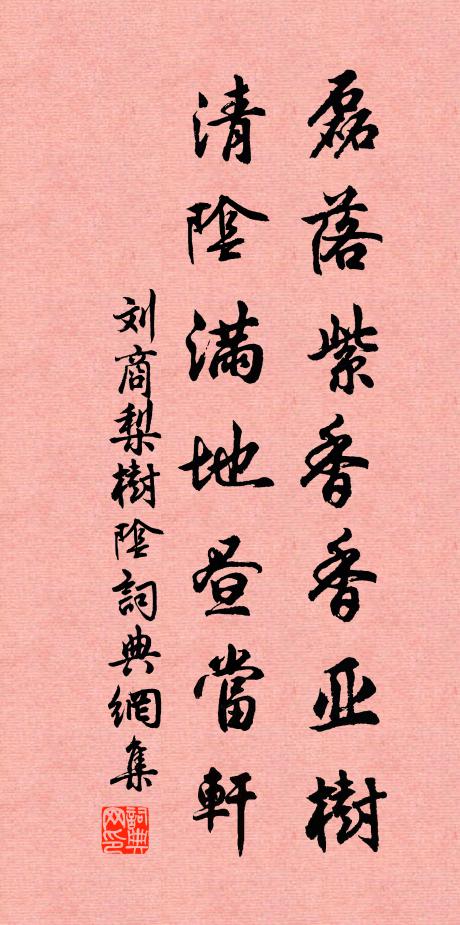 磊落紫香香亚樹
清陰满地昼當軒
刘商梨樹陰詞典網集
詞典网印